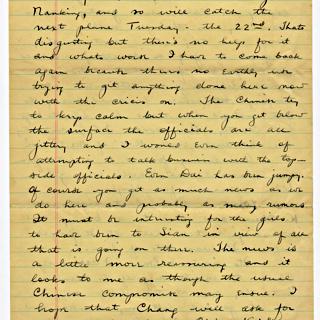 Nanking, and so will catch the
next plane Tuesday - the 22nd. Thats
disgusting but there's no help for it
and whats worse I have to come back
again because theres no Earthly use
trying to get anything done here now
with the crisis on. The Chinese try
to keep calm but when you get below
the surface the officials are all
jittery and I wouldn't even think of
attempting to talk business with the top-
side officials. Even Dai has been jumpy.
Of course you get as much news as we
do here and probably as many rumors
It must be interesting for the girls
to have been to Sian in view of all
that is going on there. The news is
a little more reassuring and it
looks to me as though the usual
Chinese compromise may ensue. I
hope that Chang will ask for